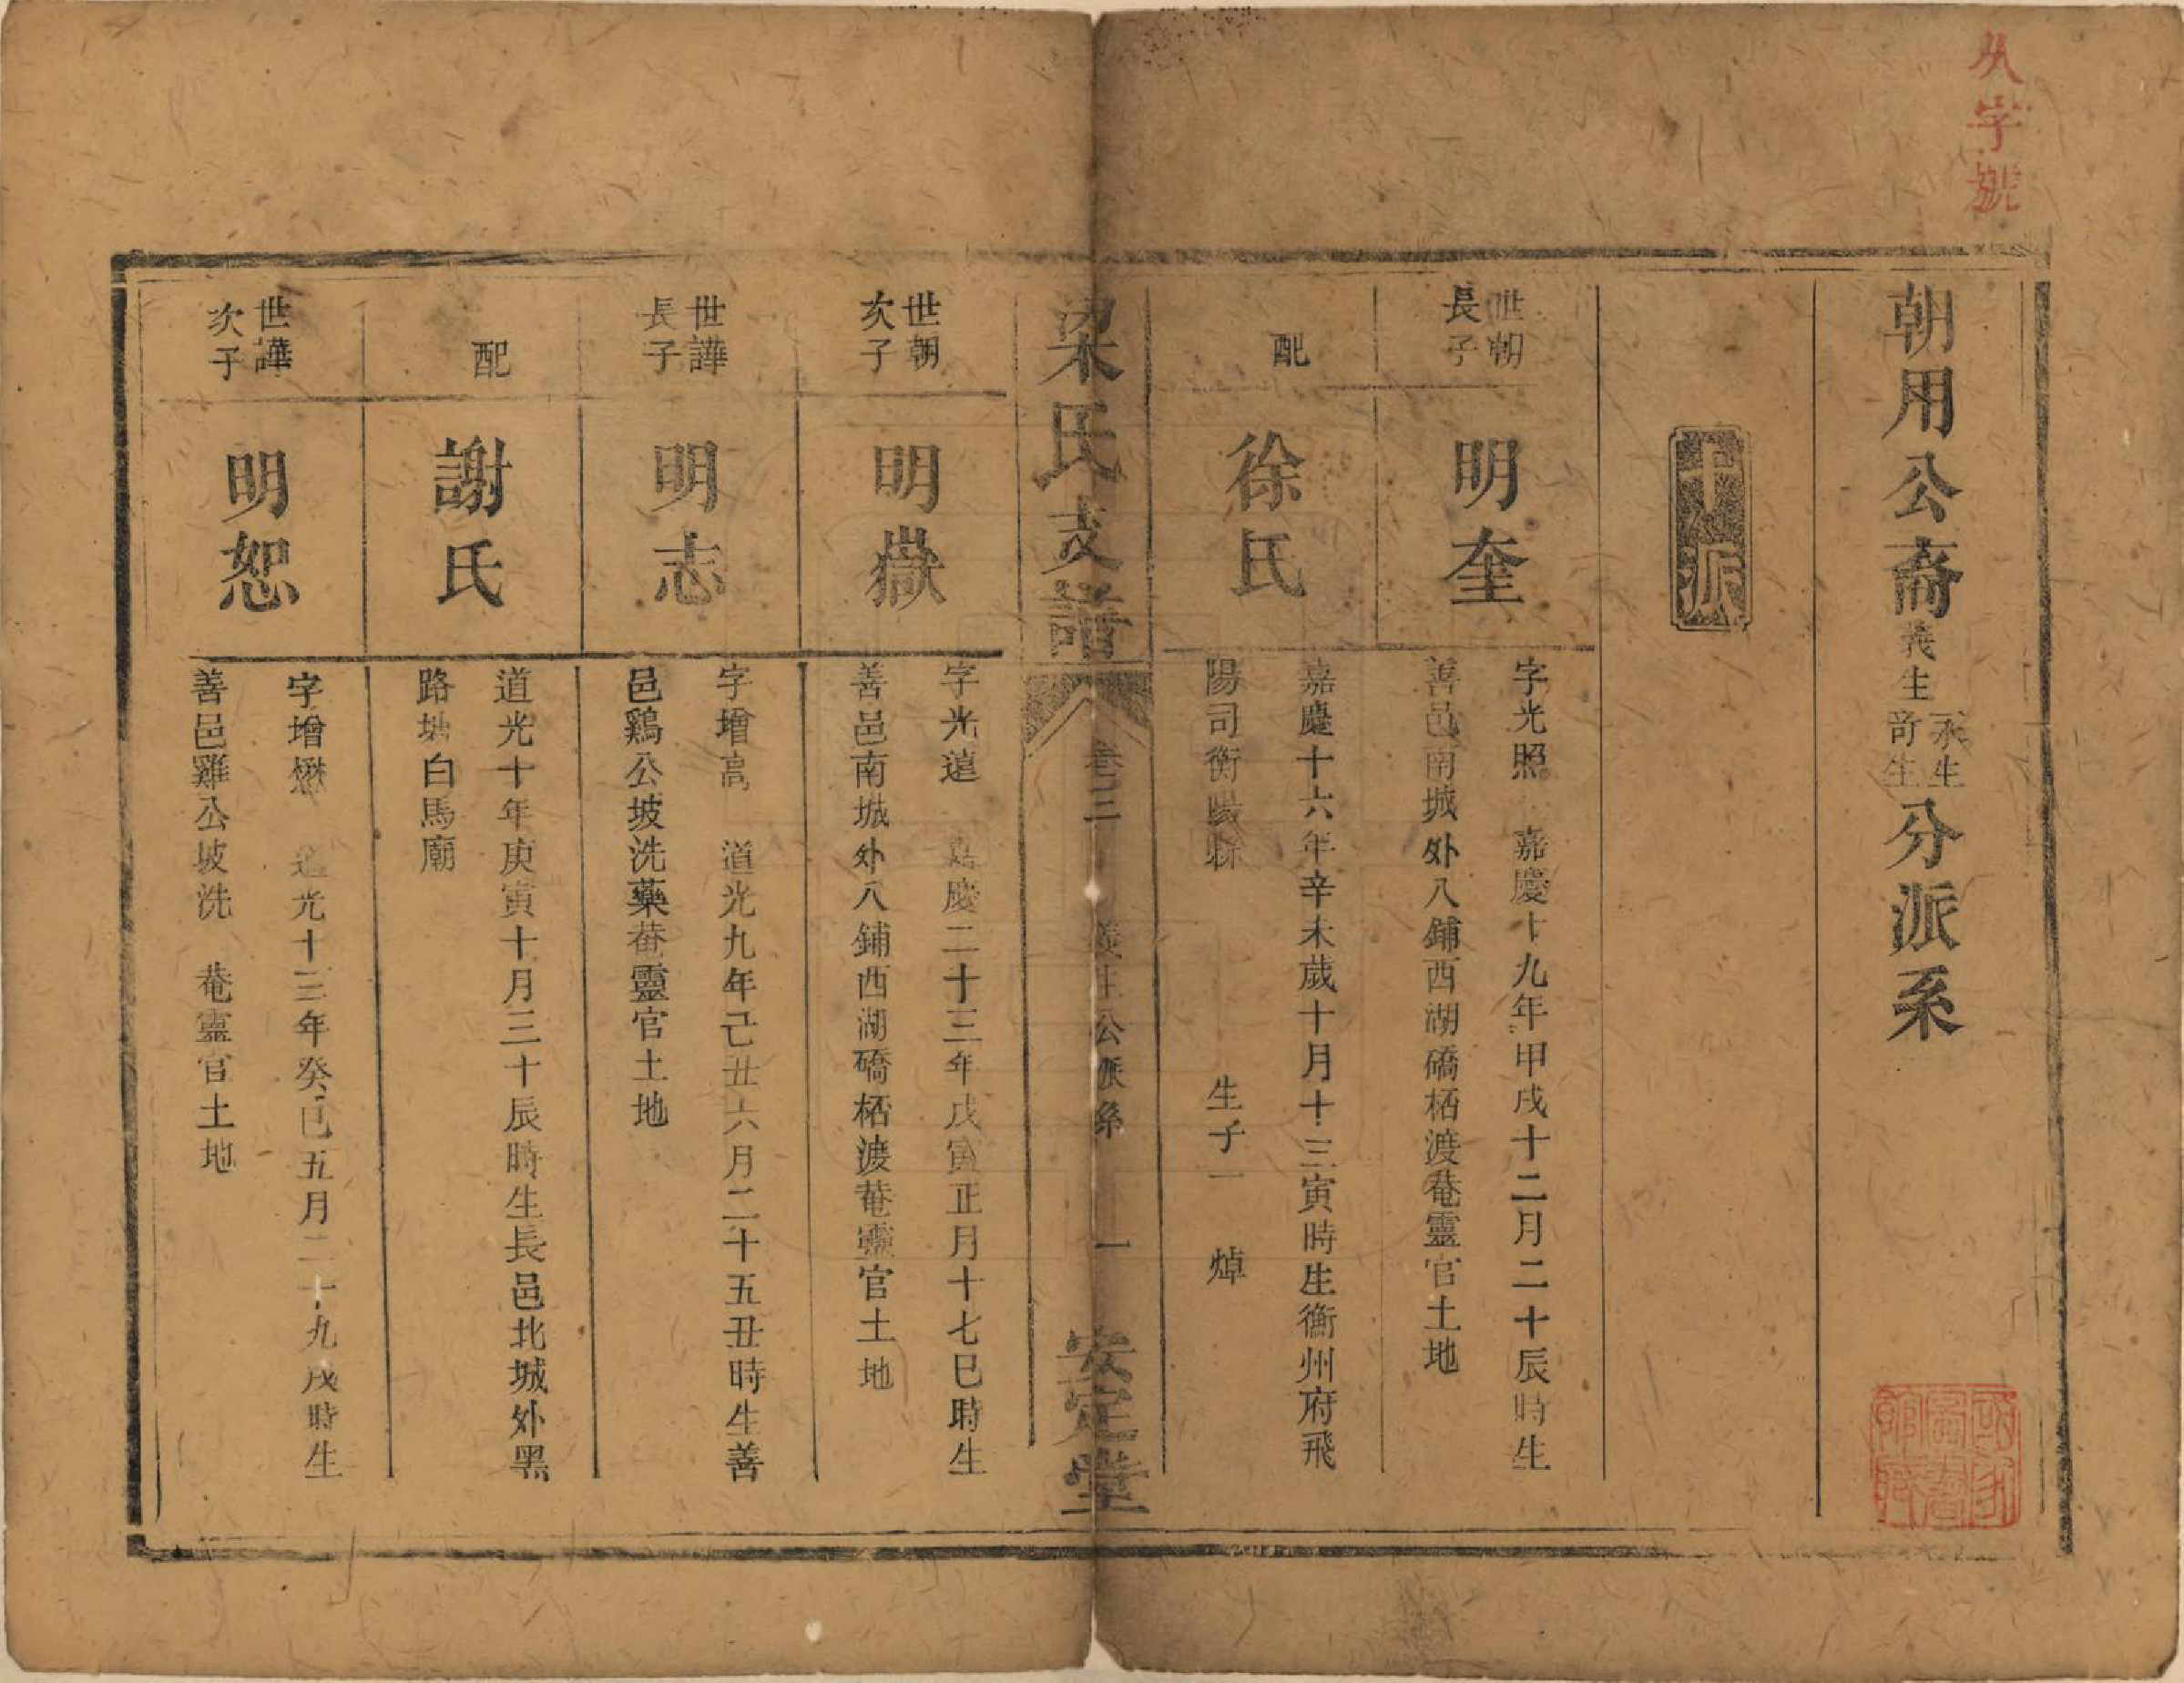 朝用公裔義生永生奇生分派系
十派
世朝長子
明奎
字光照 嘉慶十九年甲戌十二月二十辰時生
善邑南城外八鋪西湖礄栢渡菴靈官土地
配
徐氏
嘉慶十六年辛未歲十月十三寅時生衡州府飛
陽司衡陽縣 生子一 焯
梁氏支譜 卷三 義生公派系 一 安定堂
世朝次子
明嶽
字光遠 嘉慶二十三年戊寅正月十七巳時生
善邑南城外八鋪西湖礄栢渡菴靈官土地
世譁長子
明志
字增高 道光九年己丑六月二十五丑時生善
邑鷄公坡洗藥菴靈官土地
配
謝氏
道光十年庚寅十月三十辰時生長邑北城外黑
路塘白馬廟
世譁次子
明恕
字增懋 道光十三年癸巳五月二十九戌時生
善邑雞公坡洗 菴靈官土地
字號